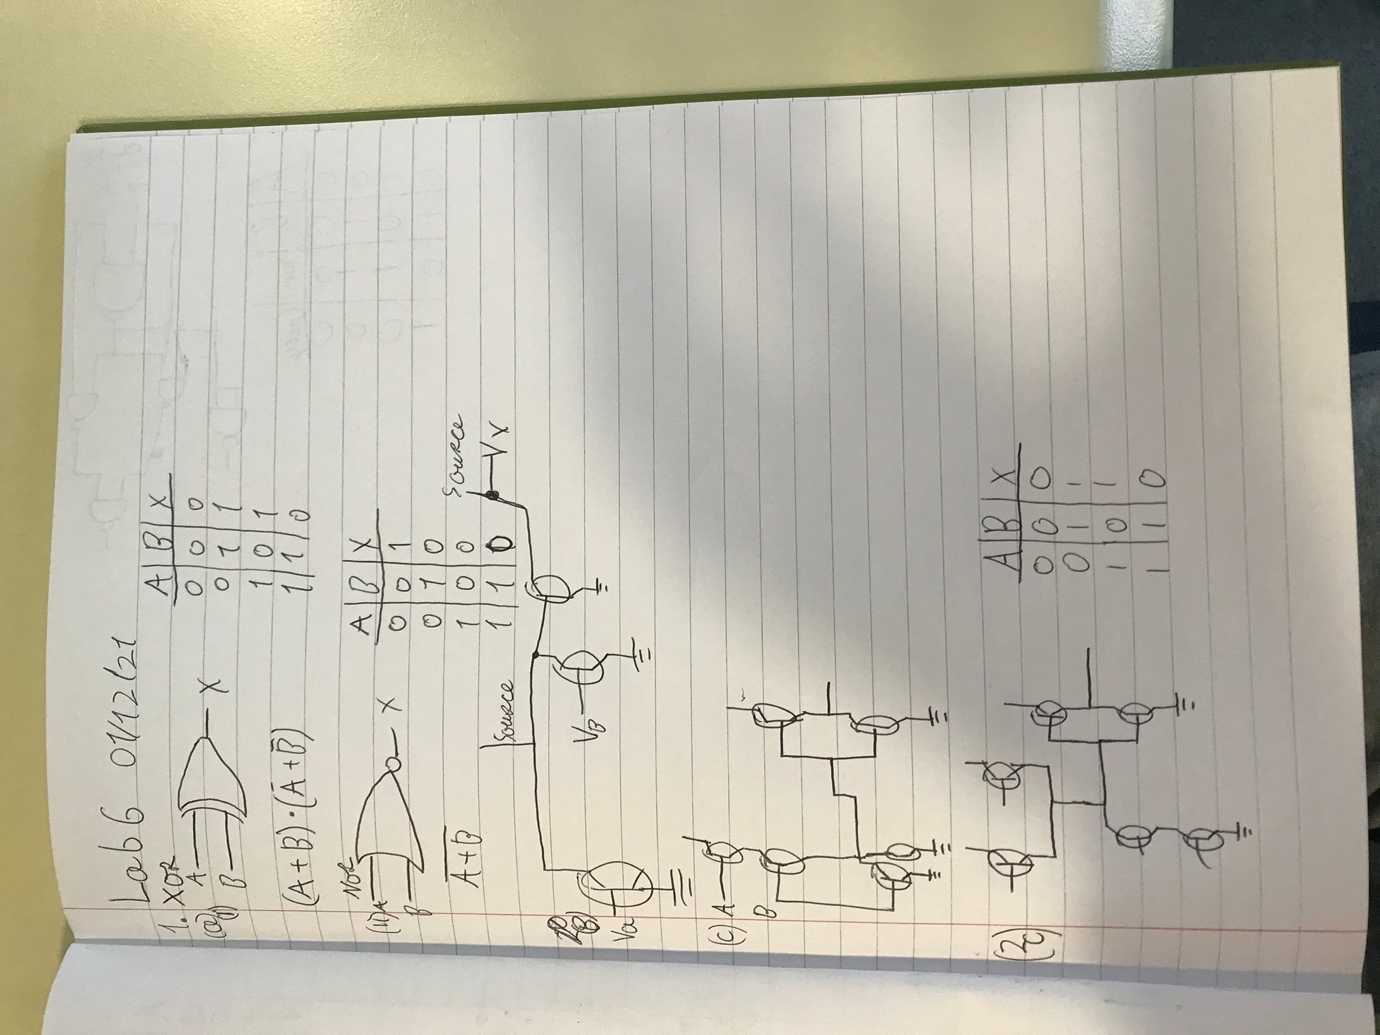 Lab 6 01/12/21
1. XOR
(a) i)
A
B
X
A B X
0 0 0
0 1 1
1 0 1
1 1 0
(A+B)·(A̅+B̅)
NOR
(ii) A
B
X
A B X
0 0 1
0 1 0
1 0 0
1 1 0
A̅+̅B̅
Source
Source
Vx
VB
Va
(c) A
B
(2c)
A B X
0 0 0
0 1 1
1 0 1
1 1 0